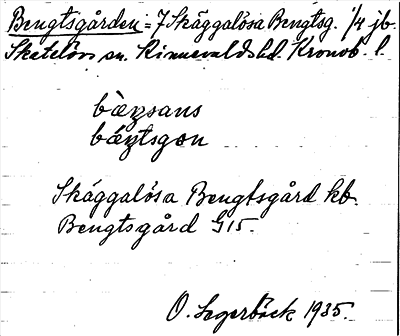 Bengtsgården = 7 Skäggalösa Bengtsg. 1/4 jb.
Skatelövs sn. Kinnevalds hd. Kronob. l.
bæ̀ŋsans
bǽŋtsgɷn
Skäggalösa Bengtsgård kb.
Bengtsgård G15.
O. Lagerbäck 1935.